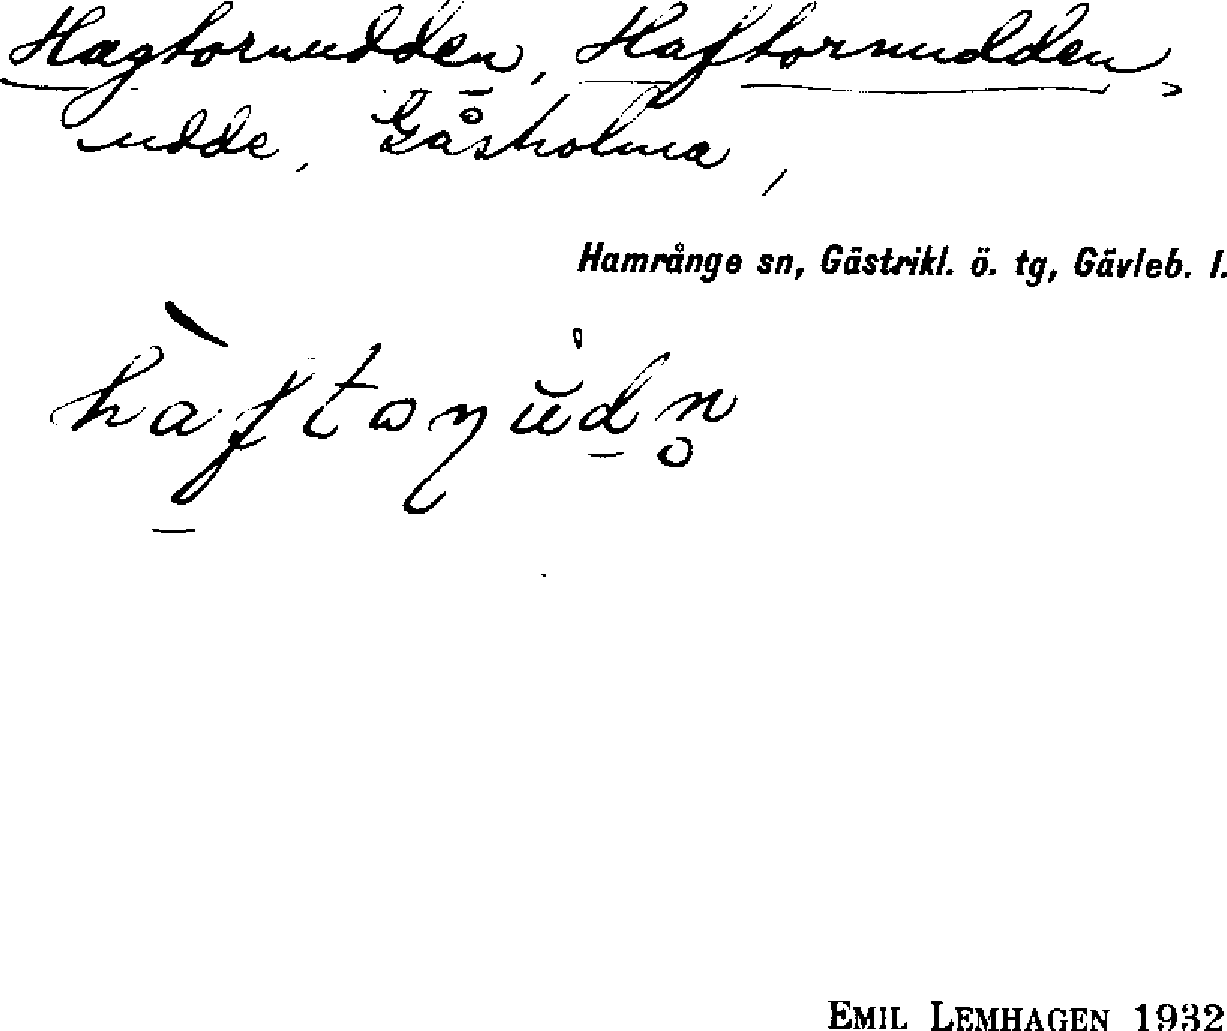 Hagtornudden, Haftornudden,
udde, Gåsholma,
Hamrånge sn, Gästrikl. ö. tg, Gävleb. l.
EMIL LEMHAGEN 1932